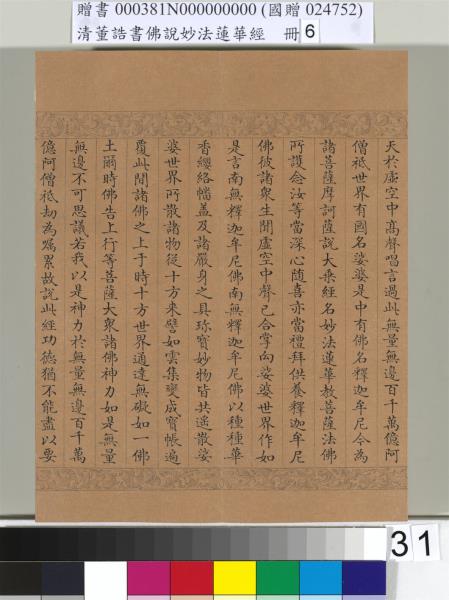 贈書 000381N000000000 (國贈 024752)
清董誥書佛說妙法蓮華經 冊 6
天於虛空中高聲唱言過此無量無邊百千萬億阿
僧祇世界有國名娑婆是中有佛名釋迦牟尼今為
諸菩薩摩訶薩說大乘經名妙法蓮華教菩薩法佛
所護念汝等當深心隨喜亦當禮拜供養釋迦牟尼
佛彼諸眾生聞虛空中聲已合掌向娑婆世界作如
是言南無釋迦牟尼佛南無釋迦牟尼佛以種種華
香瓔珞幡蓋及諸嚴身之具珍寶妙物皆共遙散娑
婆世界所散諸物從十方来譬如雲集變成寶帳遍
覆此間諸佛之上于時十方世界通達無礙如一佛
土爾時佛告上行等菩薩大眾諸佛神力如是無量
無邊不可思議若我以是神力於無量無邊百千萬
億阿僧祇劫為囑累故說此經功德猶不能盡以要
31